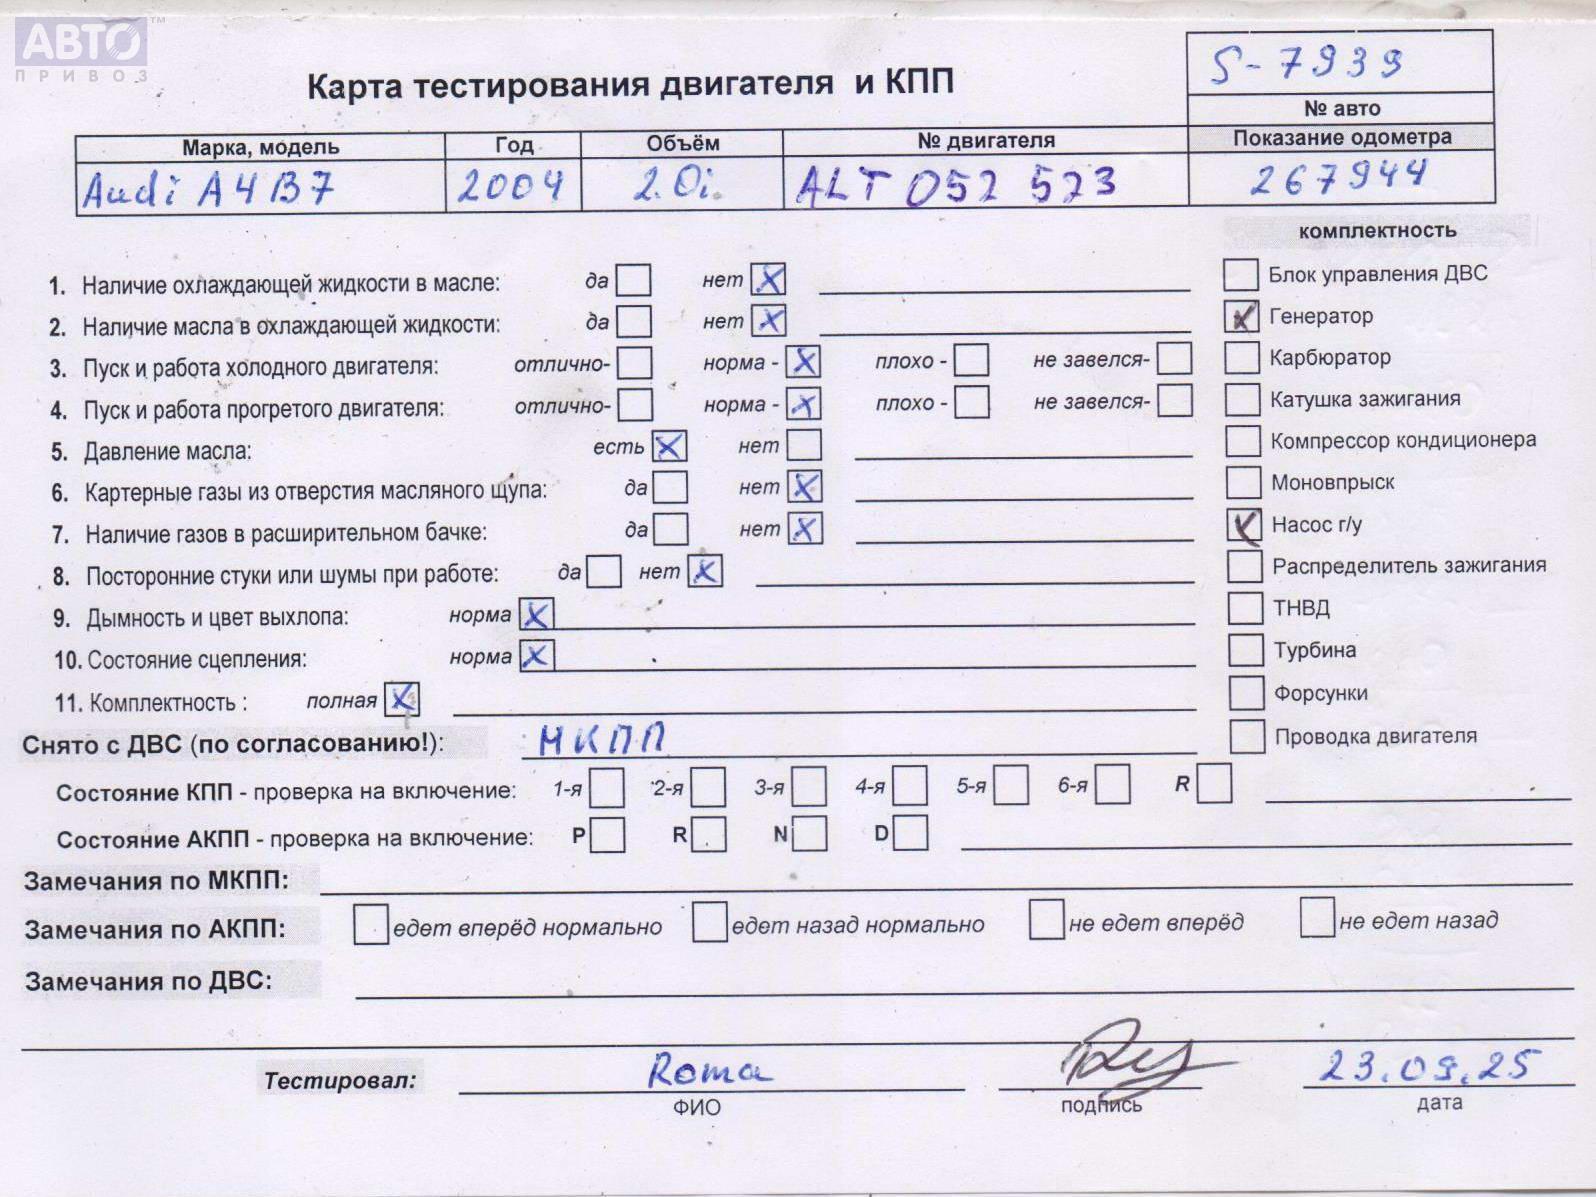 АВТО ™
ПРИВОЗ
Карта тестирования двигателя и КПП
S-7939
№ авто
Марка, модель Год Объём № двигателя Показание одометра
Audi A4B7 2004 2.0i ALT 052 523 267944
комплектность
1. Наличие охлаждающей жидкости в масле: да нет X Блок управления ДВС
2. Наличие масла в охлаждающей жидкости: да нет X Генератор
3. Пуск и работа холодного двигателя: отлично- норма - X плохо - не завелся- Карбюратор
4. Пуск и работа прогретого двигателя: отлично- норма - X плохо - не завелся- Катушка зажигания
5. Давление масла: есть X нет Компрессор кондиционера
6. Картерные газы из отверстия масляного щупа: да нет X Моновпрыск
7. Наличие газов в расширительном бачке: да нет X Насос г/у
8. Посторонние стуки или шумы при работе: да нет X Распределитель зажигания
9. Дымность и цвет выхлопа: норма X ТНВД
10. Состояние сцепления: норма X Турбина
11. Комплектность : полная X Форсунки
Снято с ДВС (по согласованию!): МКПП Проводка двигателя
Состояние КПП - проверка на включение: 1-я 2-я 3-я 4-я 5-я 6-я R
Состояние АКПП - проверка на включение: P R N D
Замечания по МКПП:
Замечания по АКПП: едет вперёд нормально едет назад нормально не едет вперёд не едет назад
Замечания по ДВС:
Тестировал: Roma 23.09.25
ФИО подпись дата